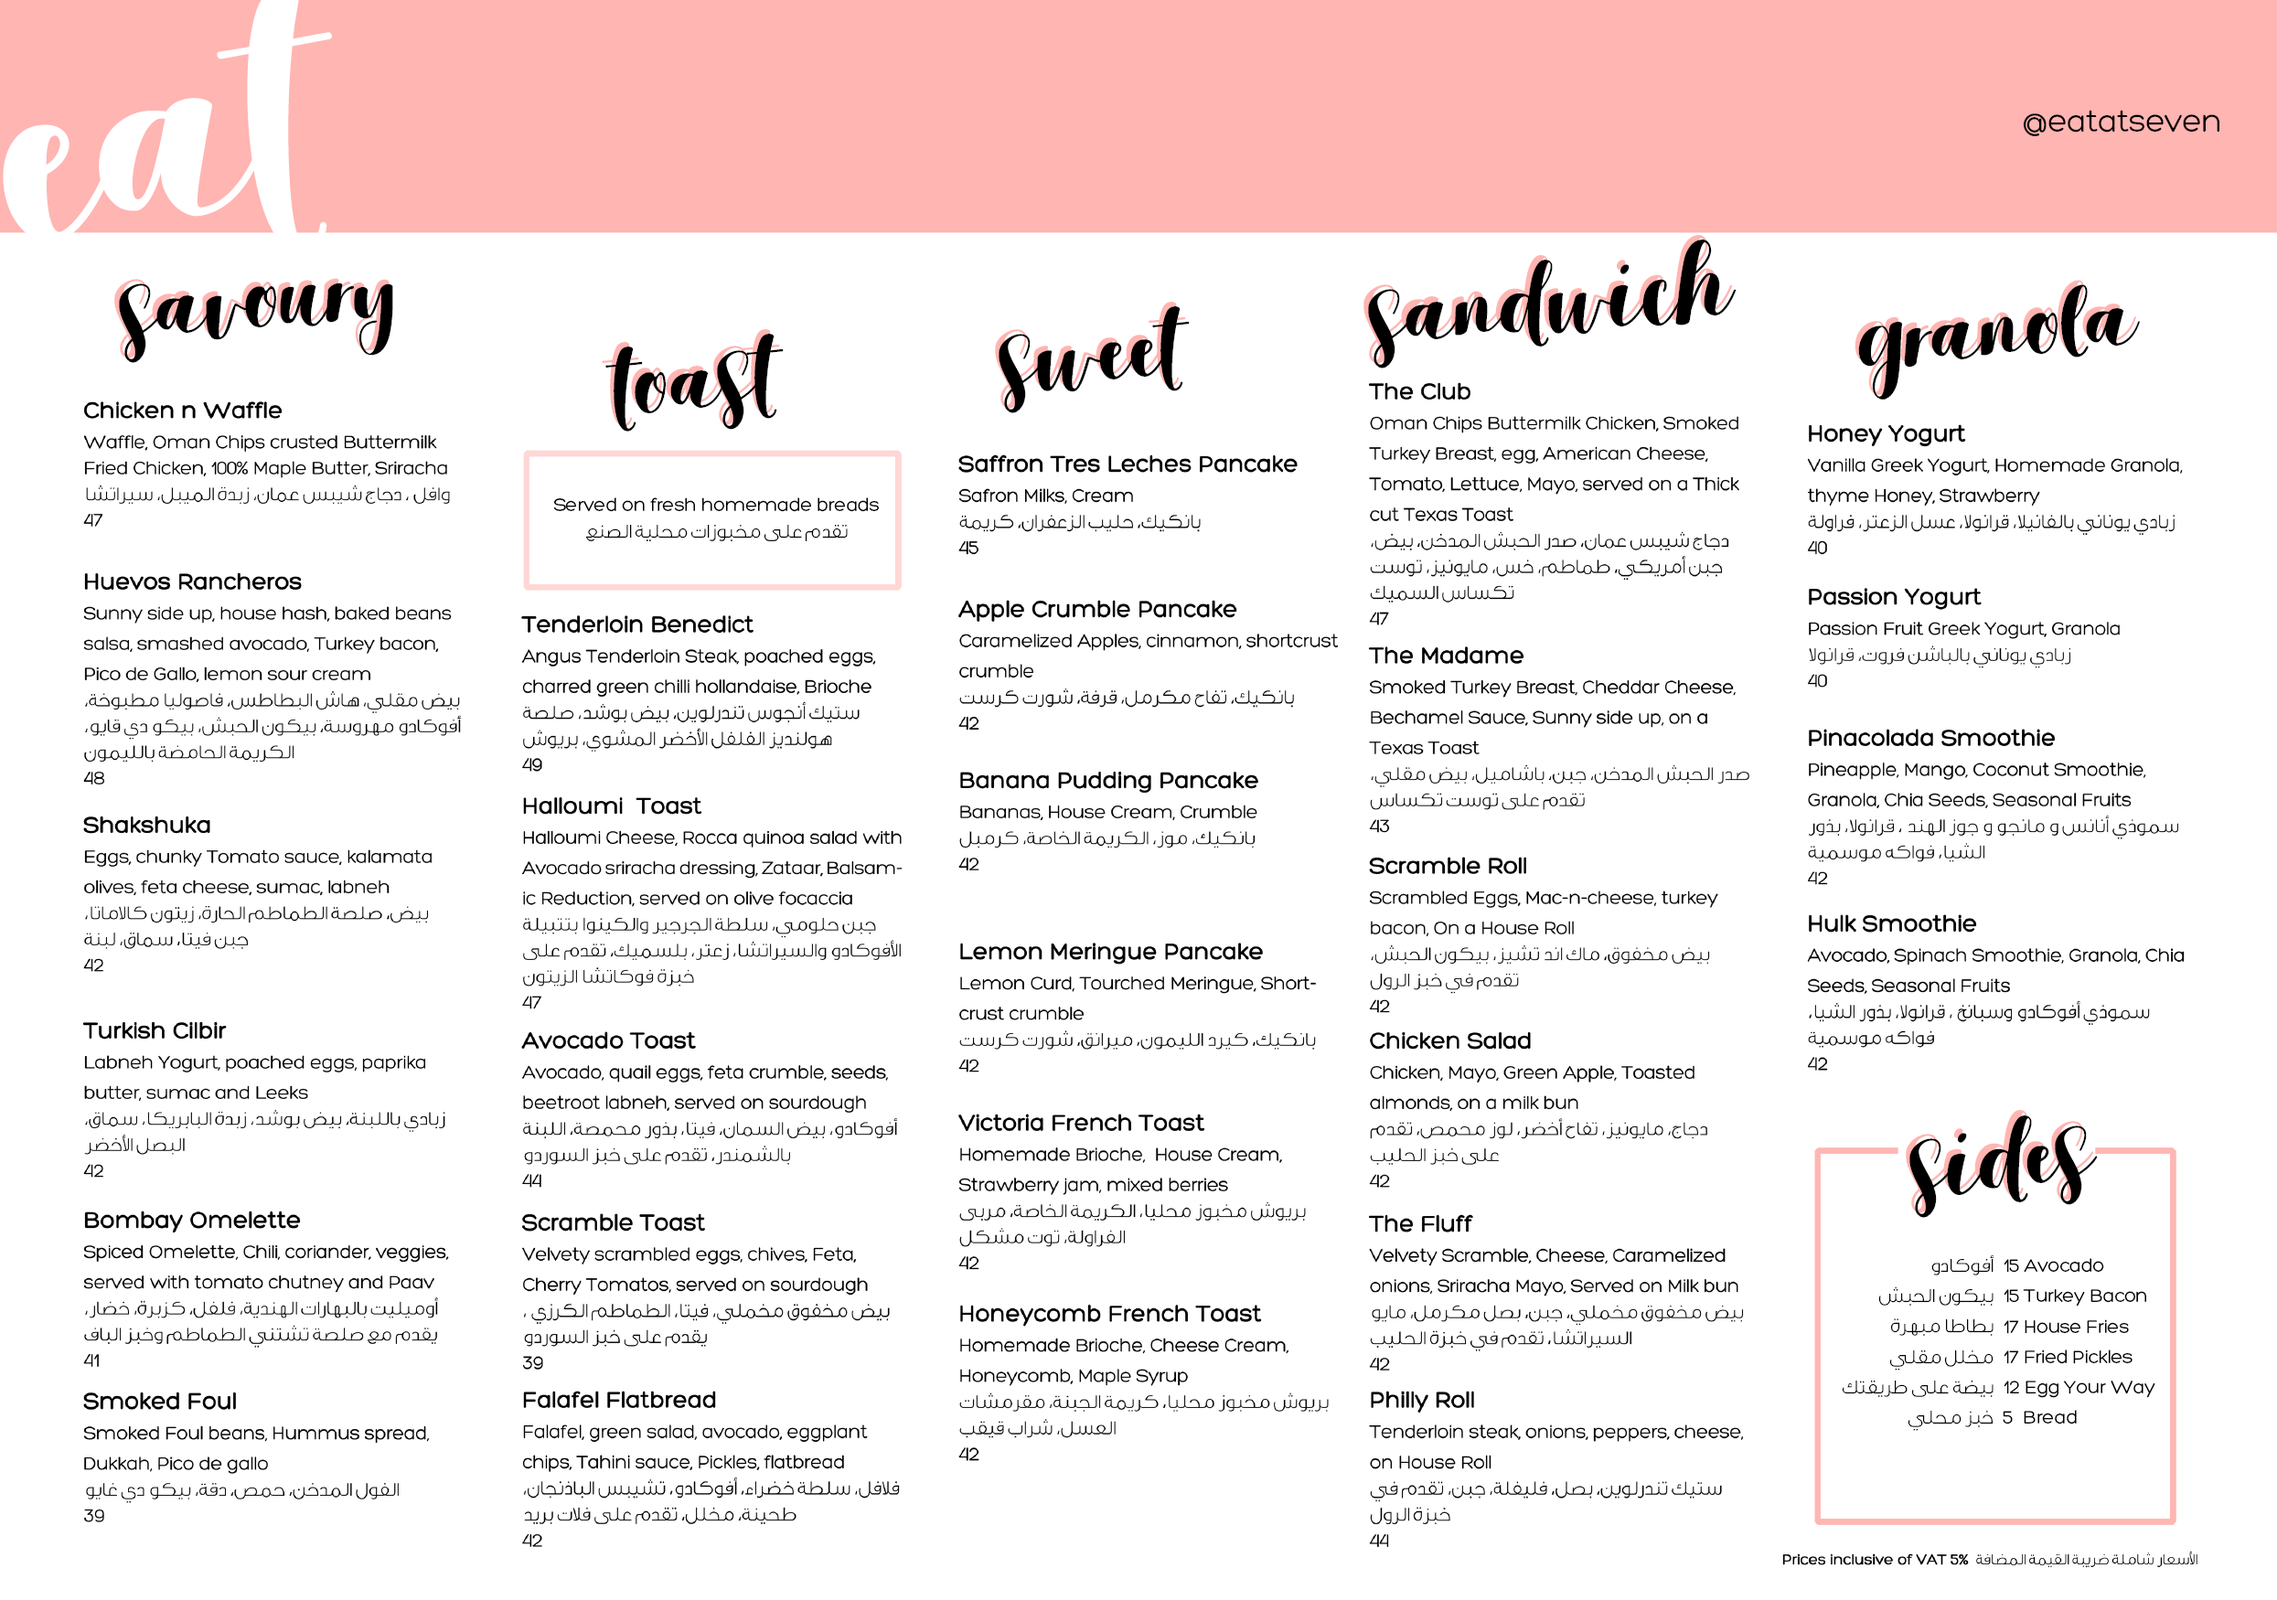 eat
@eatatseven
savoury
Chicken n Waffle
Waffle, Oman Chips crusted Buttermilk
Fried Chicken, 100% Maple Butter, Sriracha
وافل ، دجاج شيبس عمان، زبدة الميبل، سيراتشا
47
Huevos Rancheros
Sunny side up, house hash, baked beans
salsa, smashed avocado, Turkey bacon,
Pico de Gallo, lemon sour cream
بيض مقلي، هاش البطاطس، فاصوليا مطبوخة،
أفوكادو مهروسة، بيكون الحبش، بيكو دي قايو،
الكريمة الحامضة بالليمون
48
Shakshuka
Eggs, chunky Tomato sauce, kalamata
olives, feta cheese, sumac, labneh
بيض، صلصة الطماطم الحارة، زيتون كالاماتا،
جبن فيتا، سماق، لبنة
42
Turkish Cilbir
Labneh Yogurt, poached eggs, paprika
butter, sumac and Leeks
زبادي باللبنة، بيض بوشد، زبدة البابريكا، سماق،
البصل الأخضر
42
Bombay Omelette
Spiced Omelette, Chili, coriander, veggies,
served with tomato chutney and Paav
أومیلیت بالبهارات الهندية، فلفل، كزبرة، خضار،
يقدم مع صلصة تشتني الطماطم وخبز الباف
41
Smoked Foul
Smoked Foul beans, Hummus spread,
Dukkah, Pico de gallo
الفول المدخن، حمص، دقة، بيكو دي غايو
39
toast
Served on fresh homemade breads
تقدم على مخبوزات محلية الصنع
Tenderloin Benedict
Angus Tenderloin Steak, poached eggs,
charred green chilli hollandaise, Brioche
ستيك أنجوس تندرلوين، بيض بوشد، صلصة
هولنديز الفلفل الأخضر المشوي، بريوش
49
Halloumi Toast
Halloumi Cheese, Rocca quinoa salad with
Avocado sriracha dressing, Zataar, Balsam-
ic Reduction, served on olive focaccia
جبن حلومي، سلطة الجرجير والكينوا بتتبيلة
الأفوكادو والسيراتشا، زعتر، بلسميك، تقدم على
خبزة فوكاتشا الزيتون
47
Avocado Toast
Avocado, quail eggs, feta crumble, seeds,
beetroot labneh, served on sourdough
أفوكادو، بيض السمان، فيتا، بذور محمصة، اللبنة
بالشمندر، تقدم على خبز السوردو
44
Scramble Toast
Velvety scrambled eggs, chives, Feta,
Cherry Tomatos, served on sourdough
بيض مخفوق مخملي، فيتا، الطماطم الكرزي ،
يقدم على خبز السوردو
39
Falafel Flatbread
Falafel, green salad, avocado, eggplant
chips, Tahini sauce, Pickles, flatbread
فلافل، سلطة خضراء، أفوكادو، تشيبس الباذنجان،
طحينة، مخلل، تقدم على فلات بريد
42
sweet
Saffron Tres Leches Pancake
Safron Milks, Cream
بانكيك، حليب الزعفران، كريمة
45
Apple Crumble Pancake
Caramelized Apples, cinnamon, shortcrust
crumble
بانكيك، تفاح مكرمل، قرفة، شورت كرست
42
Banana Pudding Pancake
Bananas, House Cream, Crumble
بانكيك، موز، الكريمة الخاصة، كرمبل
42
Lemon Meringue Pancake
Lemon Curd, Tourched Meringue, Short-
crust crumble
بانكيك، كيرد الليمون، ميرانق، شورت كرست
42
Victoria French Toast
Homemade Brioche, House Cream,
Strawberry jam, mixed berries
بريوش مخبوز محليا، الكريمة الخاصة، مربى
الفراولة، توت مشكل
42
Honeycomb French Toast
Homemade Brioche, Cheese Cream,
Honeycomb, Maple Syrup
بريوش مخبوز محليا، كريمة الجبنة، مقرمشات
العسل، شراب قيقب
42
sandwich
The Club
Oman Chips Buttermilk Chicken, Smoked
Turkey Breast, egg, American Cheese,
Tomato, Lettuce, Mayo, served on a Thick
cut Texas Toast
دجاج شيبس عمان، صدر الحبش المدخن، بيض،
جبن أمريكي، طماطم، خس، مايونيز، توست
تكساس السميك
47
The Madame
Smoked Turkey Breast, Cheddar Cheese,
Bechamel Sauce, Sunny side up, on a
Texas Toast
صدر الحبش المدخن، جبن، باشاميل، بيض مقلي،
تقدم على توست تكساس
43
Scramble Roll
Scrambled Eggs, Mac-n-cheese, turkey
bacon, On a House Roll
بيض مخفوق، ماك اند تشيز، بيكون الحبش،
تقدم في خبز الرول
42
Chicken Salad
Chicken, Mayo, Green Apple, Toasted
almonds, on a milk bun
دجاج، مايونيز، تفاح أخضر، لوز محمص، تقدم
على خبز الحليب
42
The Fluff
Velvety Scramble, Cheese, Caramelized
onions, Sriracha Mayo, Served on Milk bun
بيض مخفوق مخملي، جبن، بصل مكرمل، مايو
السيراتشا، تقدم في خبزة الحليب
42
Philly Roll
Tenderloin steak, onions, peppers, cheese,
on House Roll
ستيك تندرلوين، بصل، فليفلة، جبن، تقدم في
خبزة الرول
44
granola
Honey Yogurt
Vanilla Greek Yogurt, Homemade Granola,
thyme Honey, Strawberry
زبادي يوناني بالفانيلا، قرانولا، عسل الزعتر، فراولة
40
Passion Yogurt
Passion Fruit Greek Yogurt, Granola
زبادي يوناني بالباشن فروت، قرانولا
40
Pinacolada Smoothie
Pineapple, Mango, Coconut Smoothie,
Granola, Chia Seeds, Seasonal Fruits
سموذي أناناس و مانجو و جوز الهند ، قرانولا، بذور
الشيا، فواكه موسمية
42
Hulk Smoothie
Avocado, Spinach Smoothie, Granola, Chia
Seeds, Seasonal Fruits
سموذي أفوكادو وسبانخ ، قرانولا، بذور الشيا،
فواكه موسمية
42
sides
أفوكادو 15 Avocado
بيكون الحبش 15 Turkey Bacon
بطاطا مبهرة 17 House Fries
مخلل مقلي 17 Fried Pickles
بيضة على طريقتك 12 Egg Your Way
خبز محلي 5 Bread
Prices inclusive of VAT 5% الأسعار شاملة ضريبة القيمة المضافة